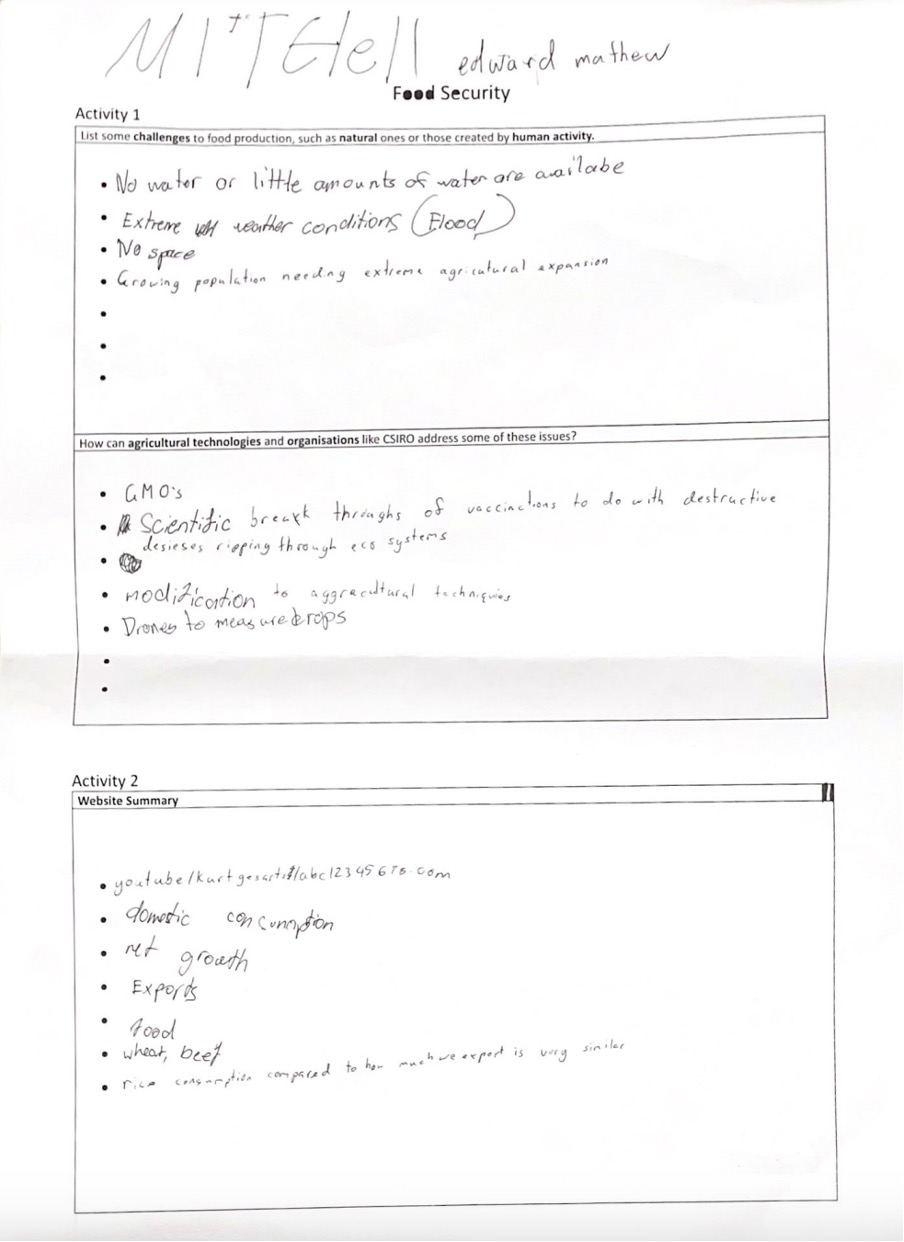 MITTCHell edward mathew
Food Security
Activity 1
List some challenges to food production, such as natural ones or those created by human activity.
• No water or little amounts of water are availabe
• Extreme weather conditions (Flood)
• No space
• Growing population needing extreme agricultural expansion
•
•
•
How can agricultural technologies and organisations like CSIRO address some of these issues?
• GMO's
• Scientific break throughs of vaccinctions to do with destructive
desieses ripping through eco systems
•
• modification to aggracultural techniques
• Drones to measure crops
•
•
Activity 2
Website Summary
• youtube/kurtgesarts/abc12345678.com
• domestic consumption
• net growth
• Exports
• food
• wheat, beef
• rice consumption compared to how much we export is very similar